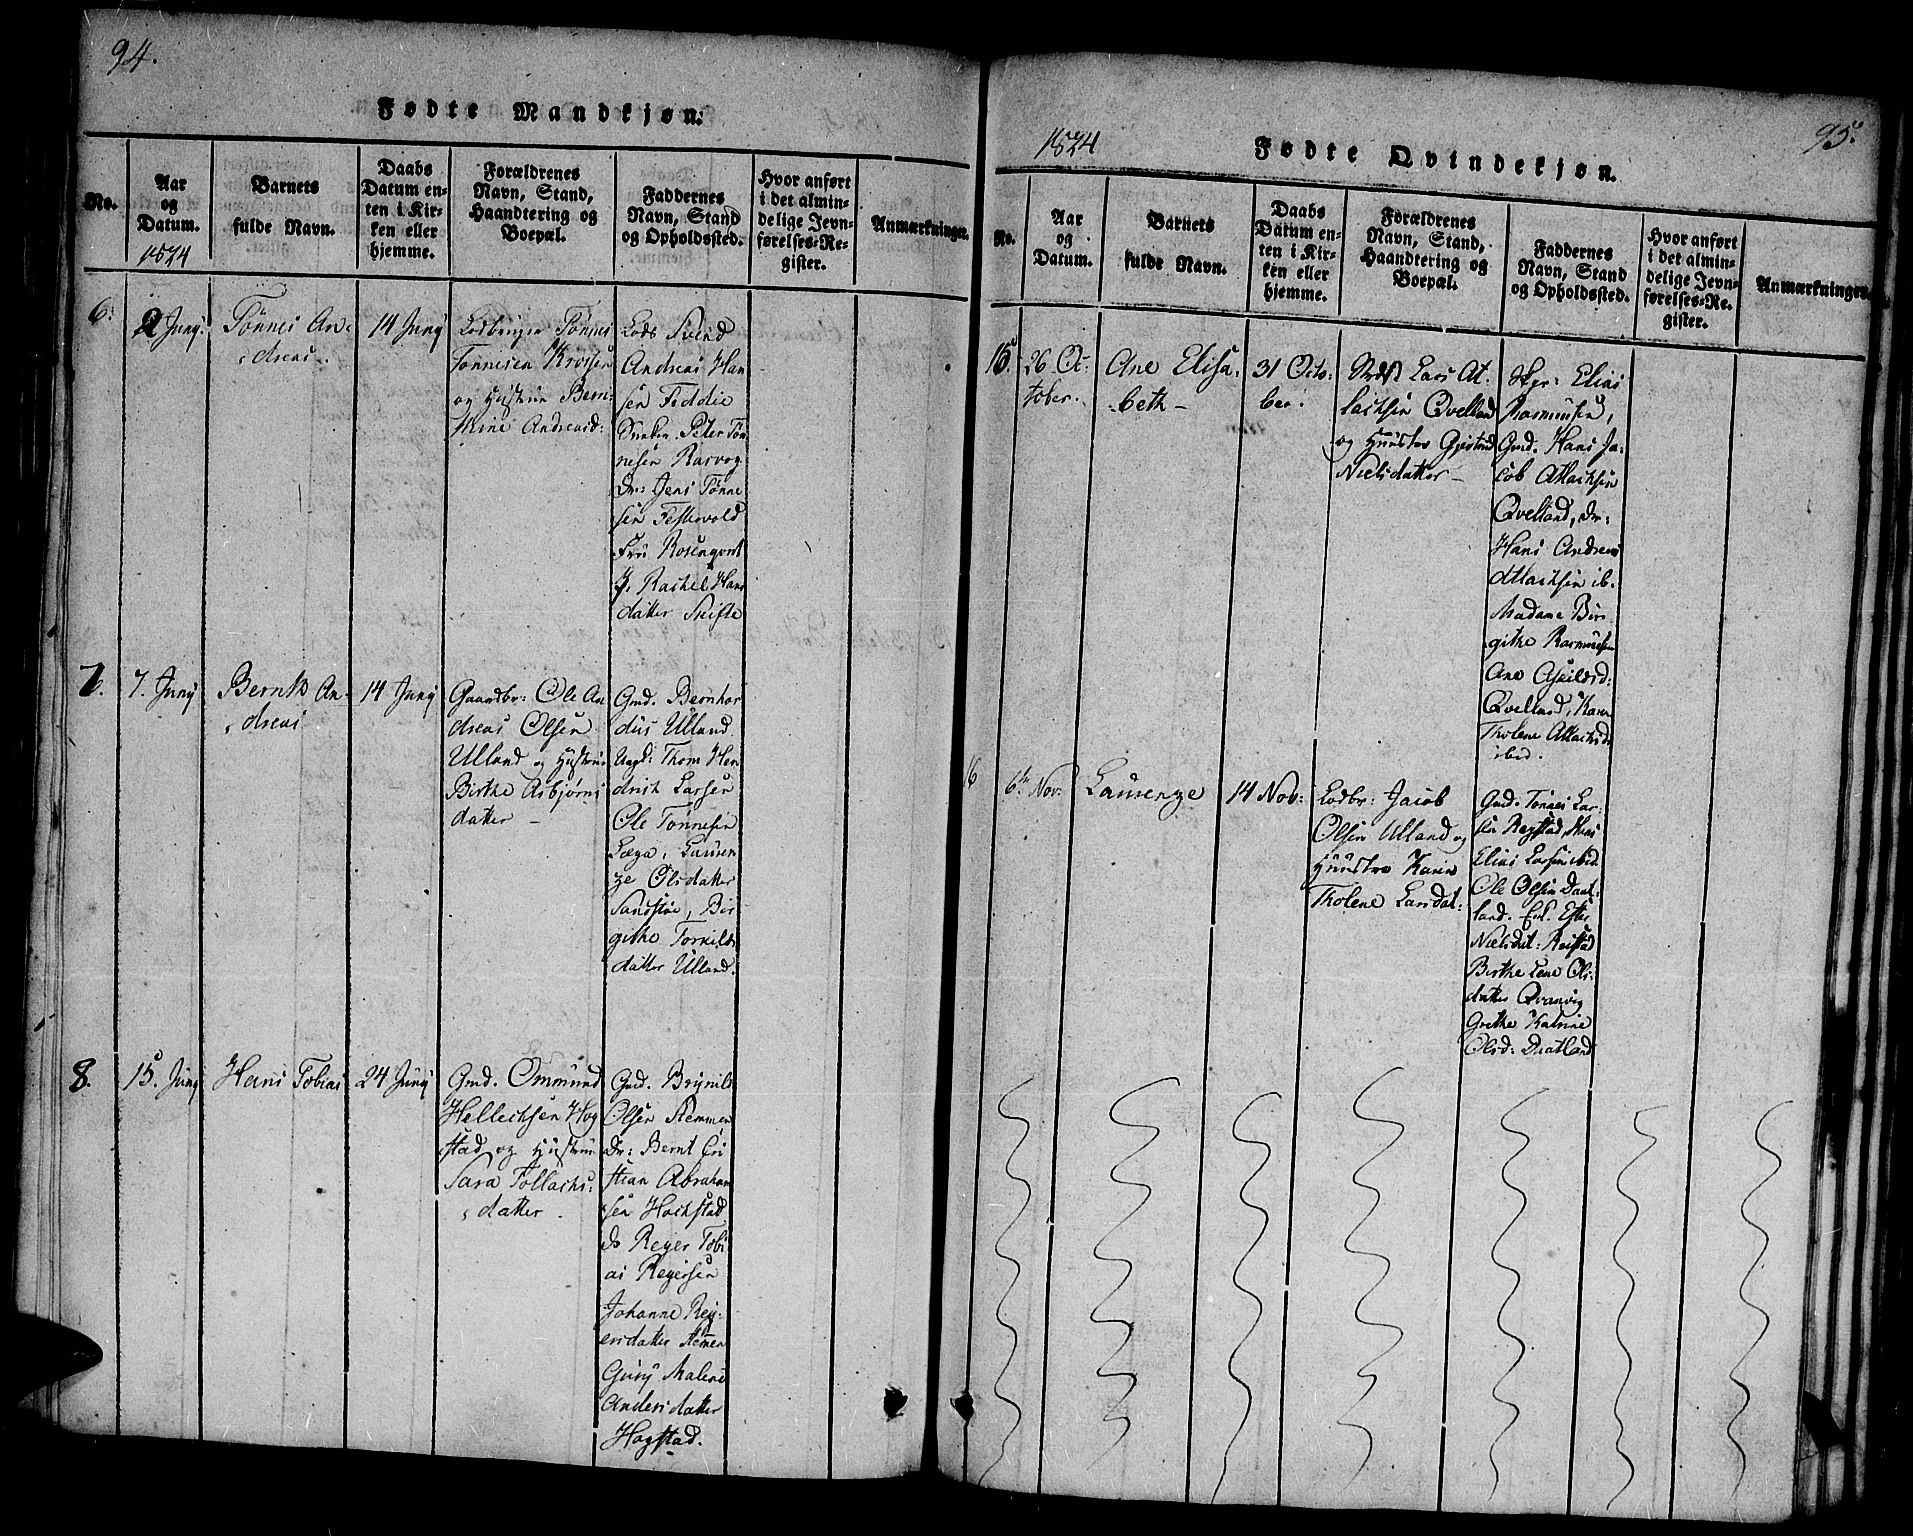 94.
Fødte Mandkjøn.
No.
Aar
og
Datum.
1824
Barnets
fulde Navn.
Daabs
Datum en-
ten i Kir-
ken eller
hjemme.
Forældrenes
Navn, Stand,
Haandtering og
Boepæl.
Faddernes
Navn, Stand
og Opholdssted.
Hvor anført
i det almin-
delige Jevn-
førelses-Re-
gister.
Anmærkninger.
6.
2 Juny.
Tønnes An-
dreas.
14 Juny
Tønnes
Tønnesen
og Hustrue Bern-
thine Andreasd:
Lods Svend
Andreas Han
sen Feddie
Peter Tøn
nesen Rasvog
Dr: Jens Tønne
sen
Fru Rosenqvist
J. Rachel Hans
datter
7.
7. Juny
Bernt An-
dreas
14 Juny
Gaardbr: Ole An
dreas Olsen
Ulland og Hustrue
Birthe Asbjørns
datter –
Gmd. Bernhar
dus Ulland
Ungd: Thom Hen
drich Larsen
Ole Tønnesen
Løga, Lausen
ze Olsdatter
Sandstøe, Bir
githe Torkilds
datter Ulland.
8.
15. Juny
Hans Tobias
24 Juny
Gmd. Ommund
Hellechsen Hog
stad og Hustrue
Sara Tollachs:
datter.
Gmd. Brynild
Olsen Stemmen
Dr: Bernt Cri
stian Abraham
sen Hochstad
Do Reyer Tobi
as Reyersen
Johanne Rey-
ersdatter Stemmen
Gurÿ Malene
Andersdatter
Hogstad.
1824
Fødte Qvindekjøn.
95.
No.
Aar
og
Datum.
Barnets
fulde Navn.
Daabs
Datum en-
ten i Kir-
ken eller
hjemme.
Forældrenes
Navn, Stand,
Haandtering og
Boepæl.
Faddernes
Navn, Stand
og Opholdssted.
Hvor anført
i det almin-
delige Jevn-
førelses-Re-
gister.
Anmærkninger.
15.
26 Oc-
tober.
Ane Elisa-
beth –
31 Octo-
ber.
Lars At-
lachsen Qvelland
og Huustro
Nielsdatter –
Skpr: Elias
Rasmussen,
Gmd. Hans Ja-
cob Atlachsen
Qvelland, Dr:
Hans Andreas
Atlachsen ib.
Madame Bir
githe Rasmussen
Ane Askildsd:
Qvelland, Karen
Tholene Atlachsd:
ibid.
16
6te Nov:
Lausenze
14 Nov:
Lodbr: Jacob
Olsen Ulland og
Huustro Karen
Tholene Larsdat:
Gmd. Tønnes Lar-
sen Regstad, Hans
Elias Larsen ibid.
Ole Olsen Daat-
land. Enk. Ester
Nielsdat: Reistad
Birthe Lene Ols-
datter Qvanvig
Grethe Katrine
Olsd: Daatland